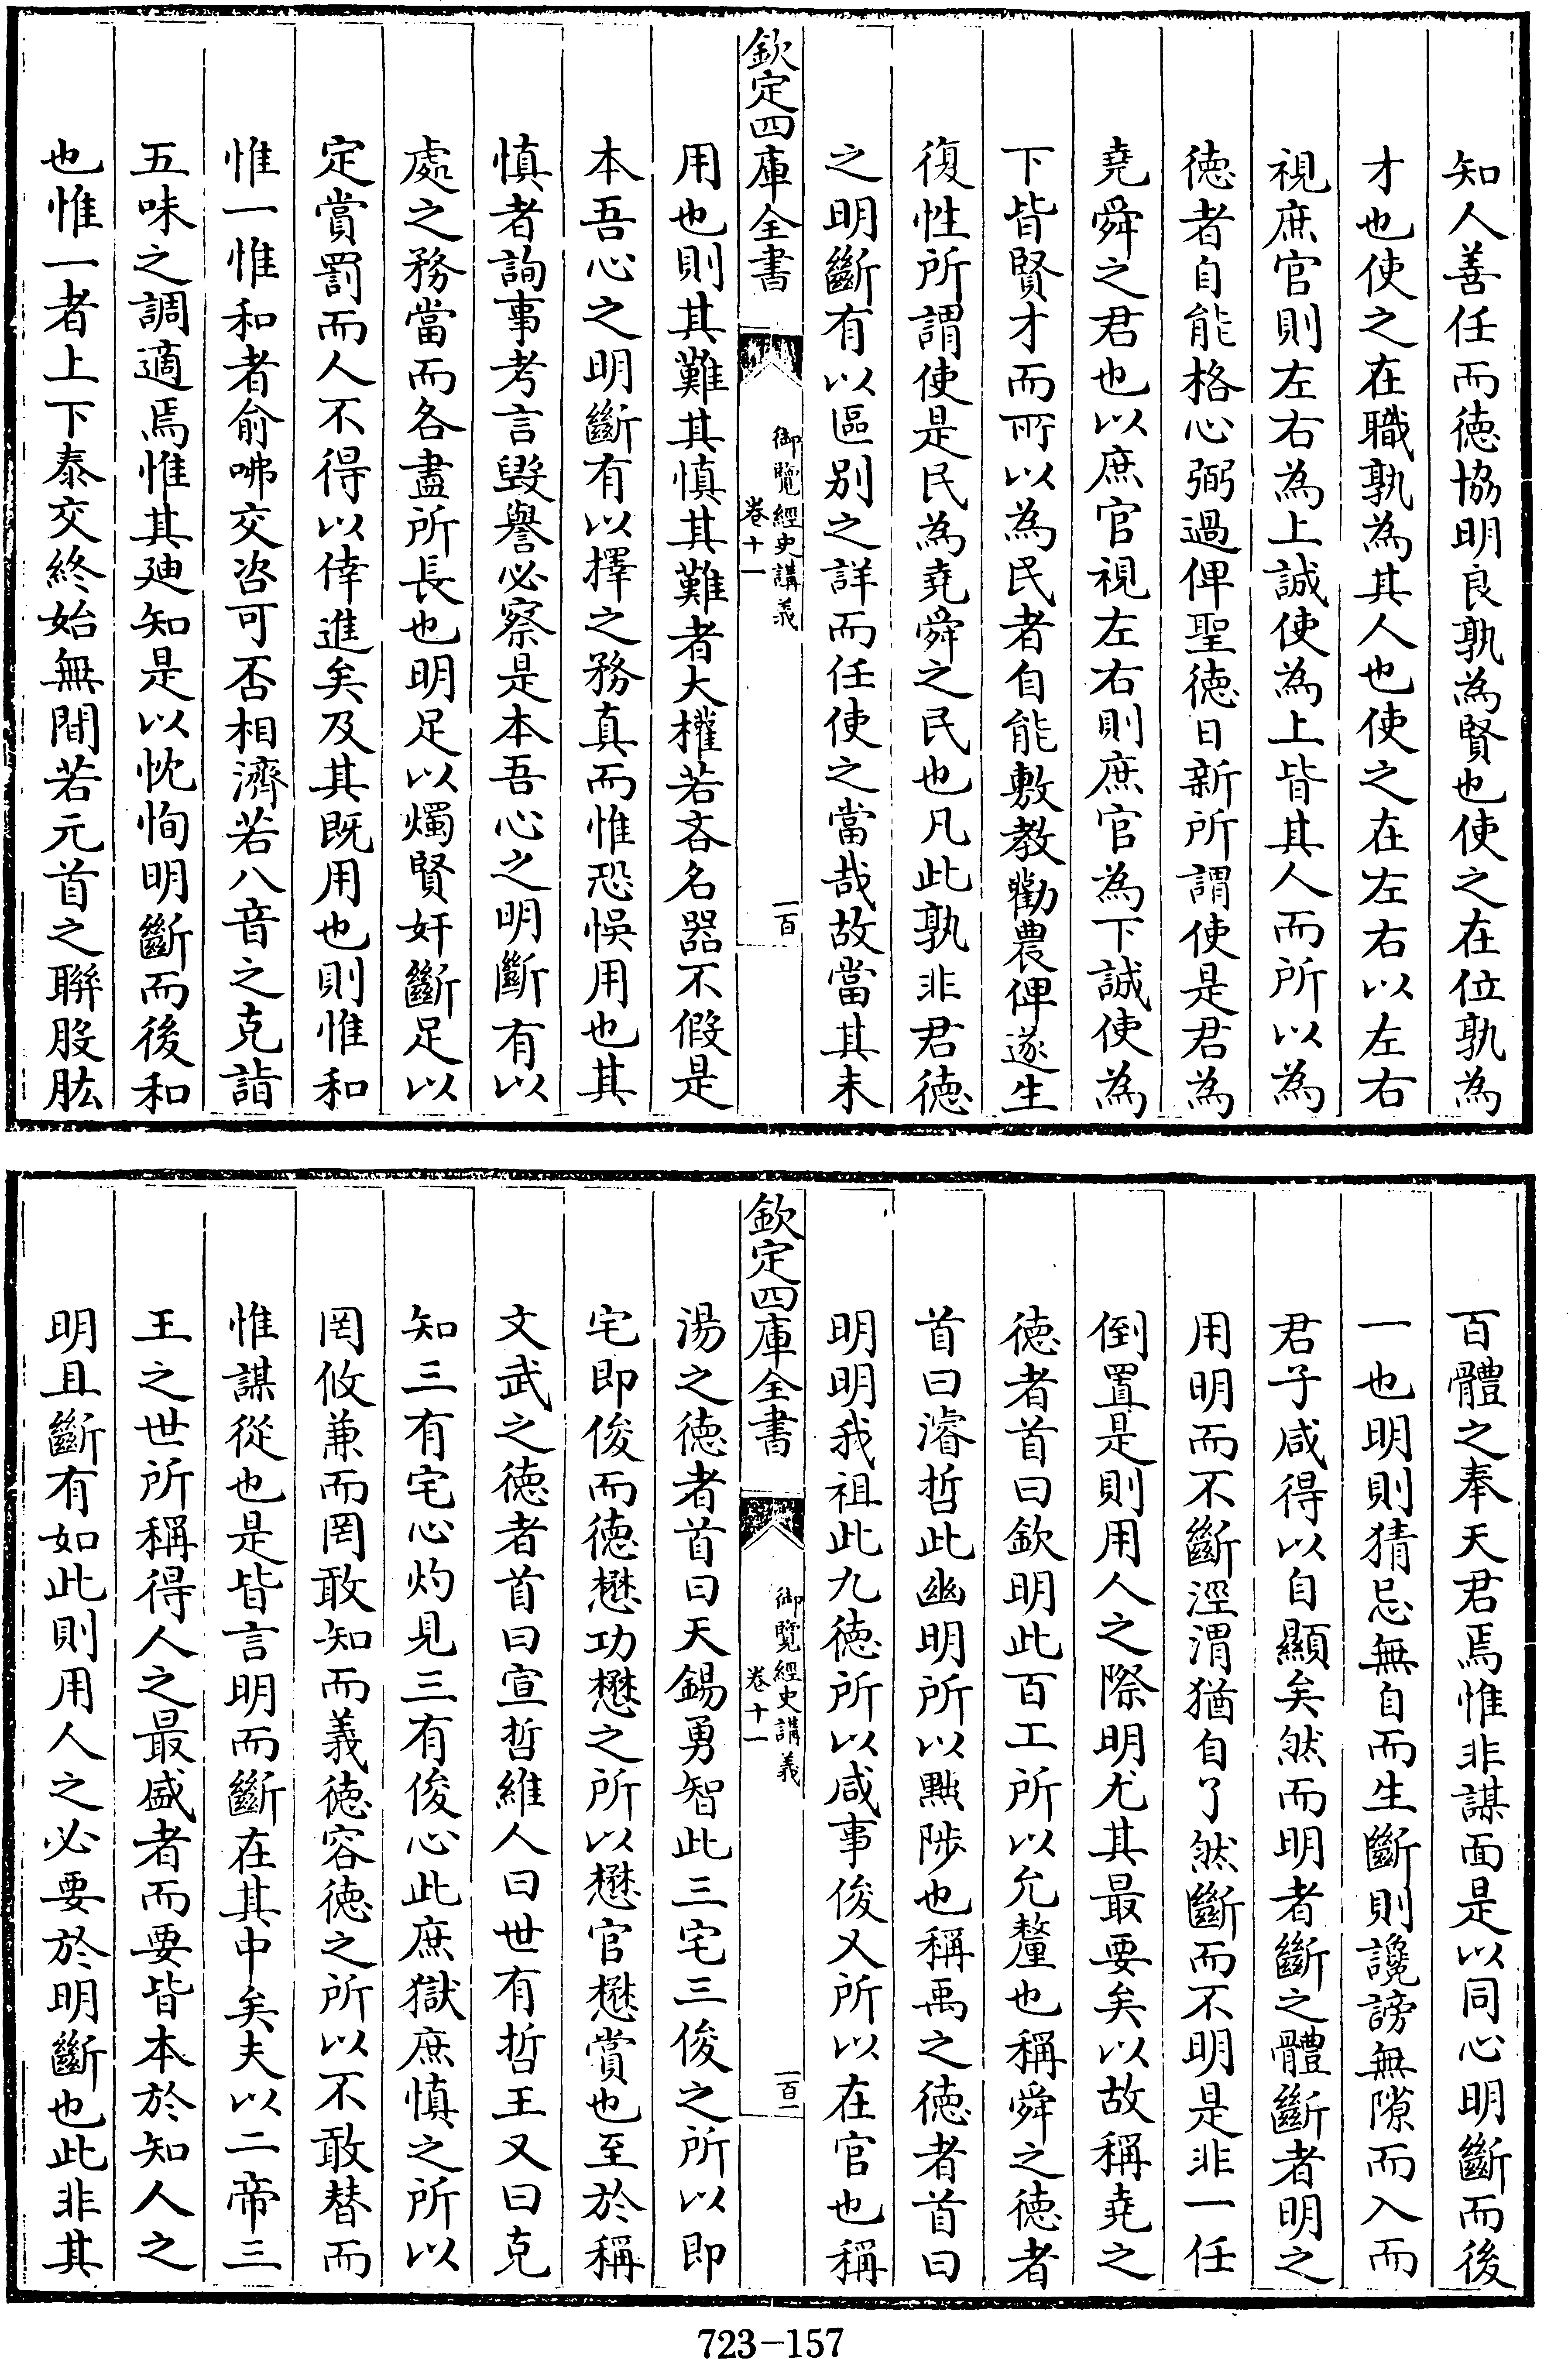 知人善任而德協明良孰為賢也使之在位孰為
才也使之在職孰為其人也使之在左右以左右
視庶官則左右為上誠使為上皆其人而所以為
德者自能格心弼過俾聖德日新所謂使是君為
堯舜之君也以庶官視左右則庶官為下誠使為
下皆賢才而所以為民者自能敷教勸農俾遂生
復性所謂使是民為堯舜之民也凡此孰非君德
之明斷有以區别之詳而任使之當哉故當其未
欽定四庫全書
御覽經史講義
卷十一
一百
用也則其難其慎其難者大權若吝名器不假是
本吾心之明斷有以擇之務真而惟恐悞用也其
慎者詢事考言毀譽必察是本吾心之明斷有以
處之務當而各盡所長也明足以燭賢奸斷足以
定賞罰而人不得以倖進矣及其既用也則惟和
惟一惟和者俞咈交咨可否相濟若八音之克諧
五味之調適焉惟其廸知是以忱恂明斷而後和
也惟一者上下泰交終始無間若元首之聯股肱
百體之奉天君焉惟非謀面是以同心明斷而後
一也明則猜忌無自而生斷則讒謗無隙而入而
君子咸得以自顯矣然而明者斷之體斷者明之
用明而不斷涇渭猶自了然斷而不明是非一任
倒置是則用人之際明尤其最要矣以故稱堯之
德者首曰欽明此百工所以允釐也稱舜之德者
首曰濬哲此幽明所以黜陟也稱禹之德者首曰
明明我祖此九德所以咸事俊乂所以在官也稱
欽定四庫全書
御覽經史講義
卷十一
一百一
湯之德者首曰天錫勇智此三宅三俊之所以即
宅即俊而德懋功懋之所以懋官懋賞也至於稱
文武之德者首曰宣哲維人曰世有哲王又曰克
知三有宅心灼見三有俊心此庶獄庶慎之所以
罔攸兼而罔敢知而義德容德之所以不敢替而
惟謀從也是皆言明而斷在其中矣夫以二帝三
王之世所稱得人之最盛者而要皆本於知人之
明且斷有如此則用人之必要於明斷也此非其
723-157